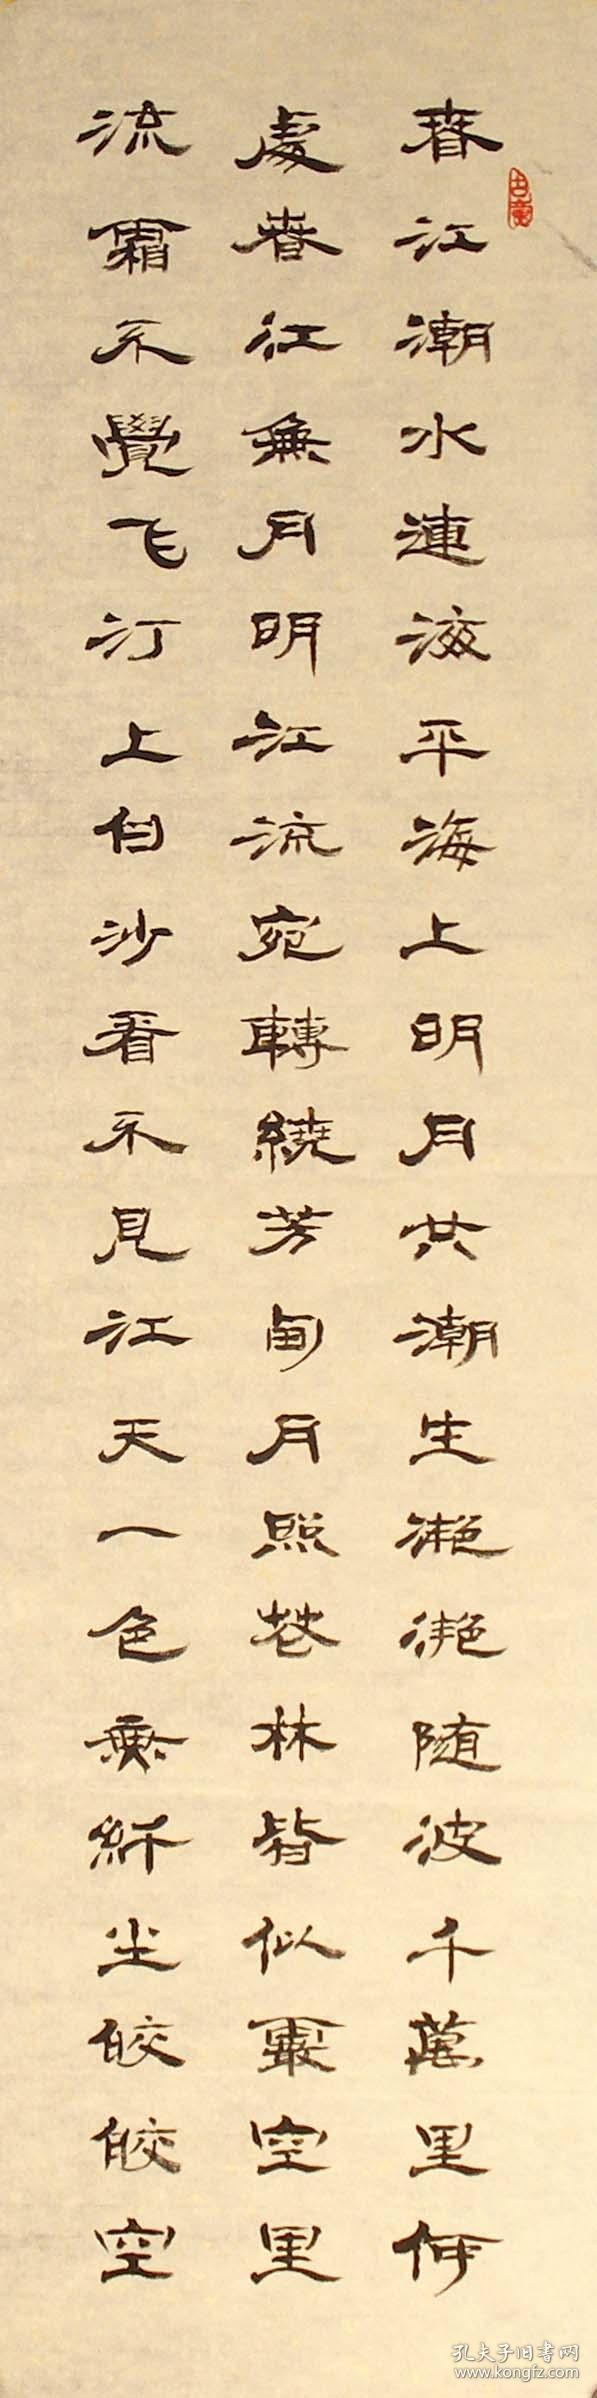 春江潮水連海平海上明月共潮生滟滟随波千萬里何
處春江無月明江流宛轉繞芳甸月照花林皆似霰空里
流霜不覺飞汀上白沙看不見江天一色無纤尘皎皎空
孔夫子旧書网
www.kongfz.com